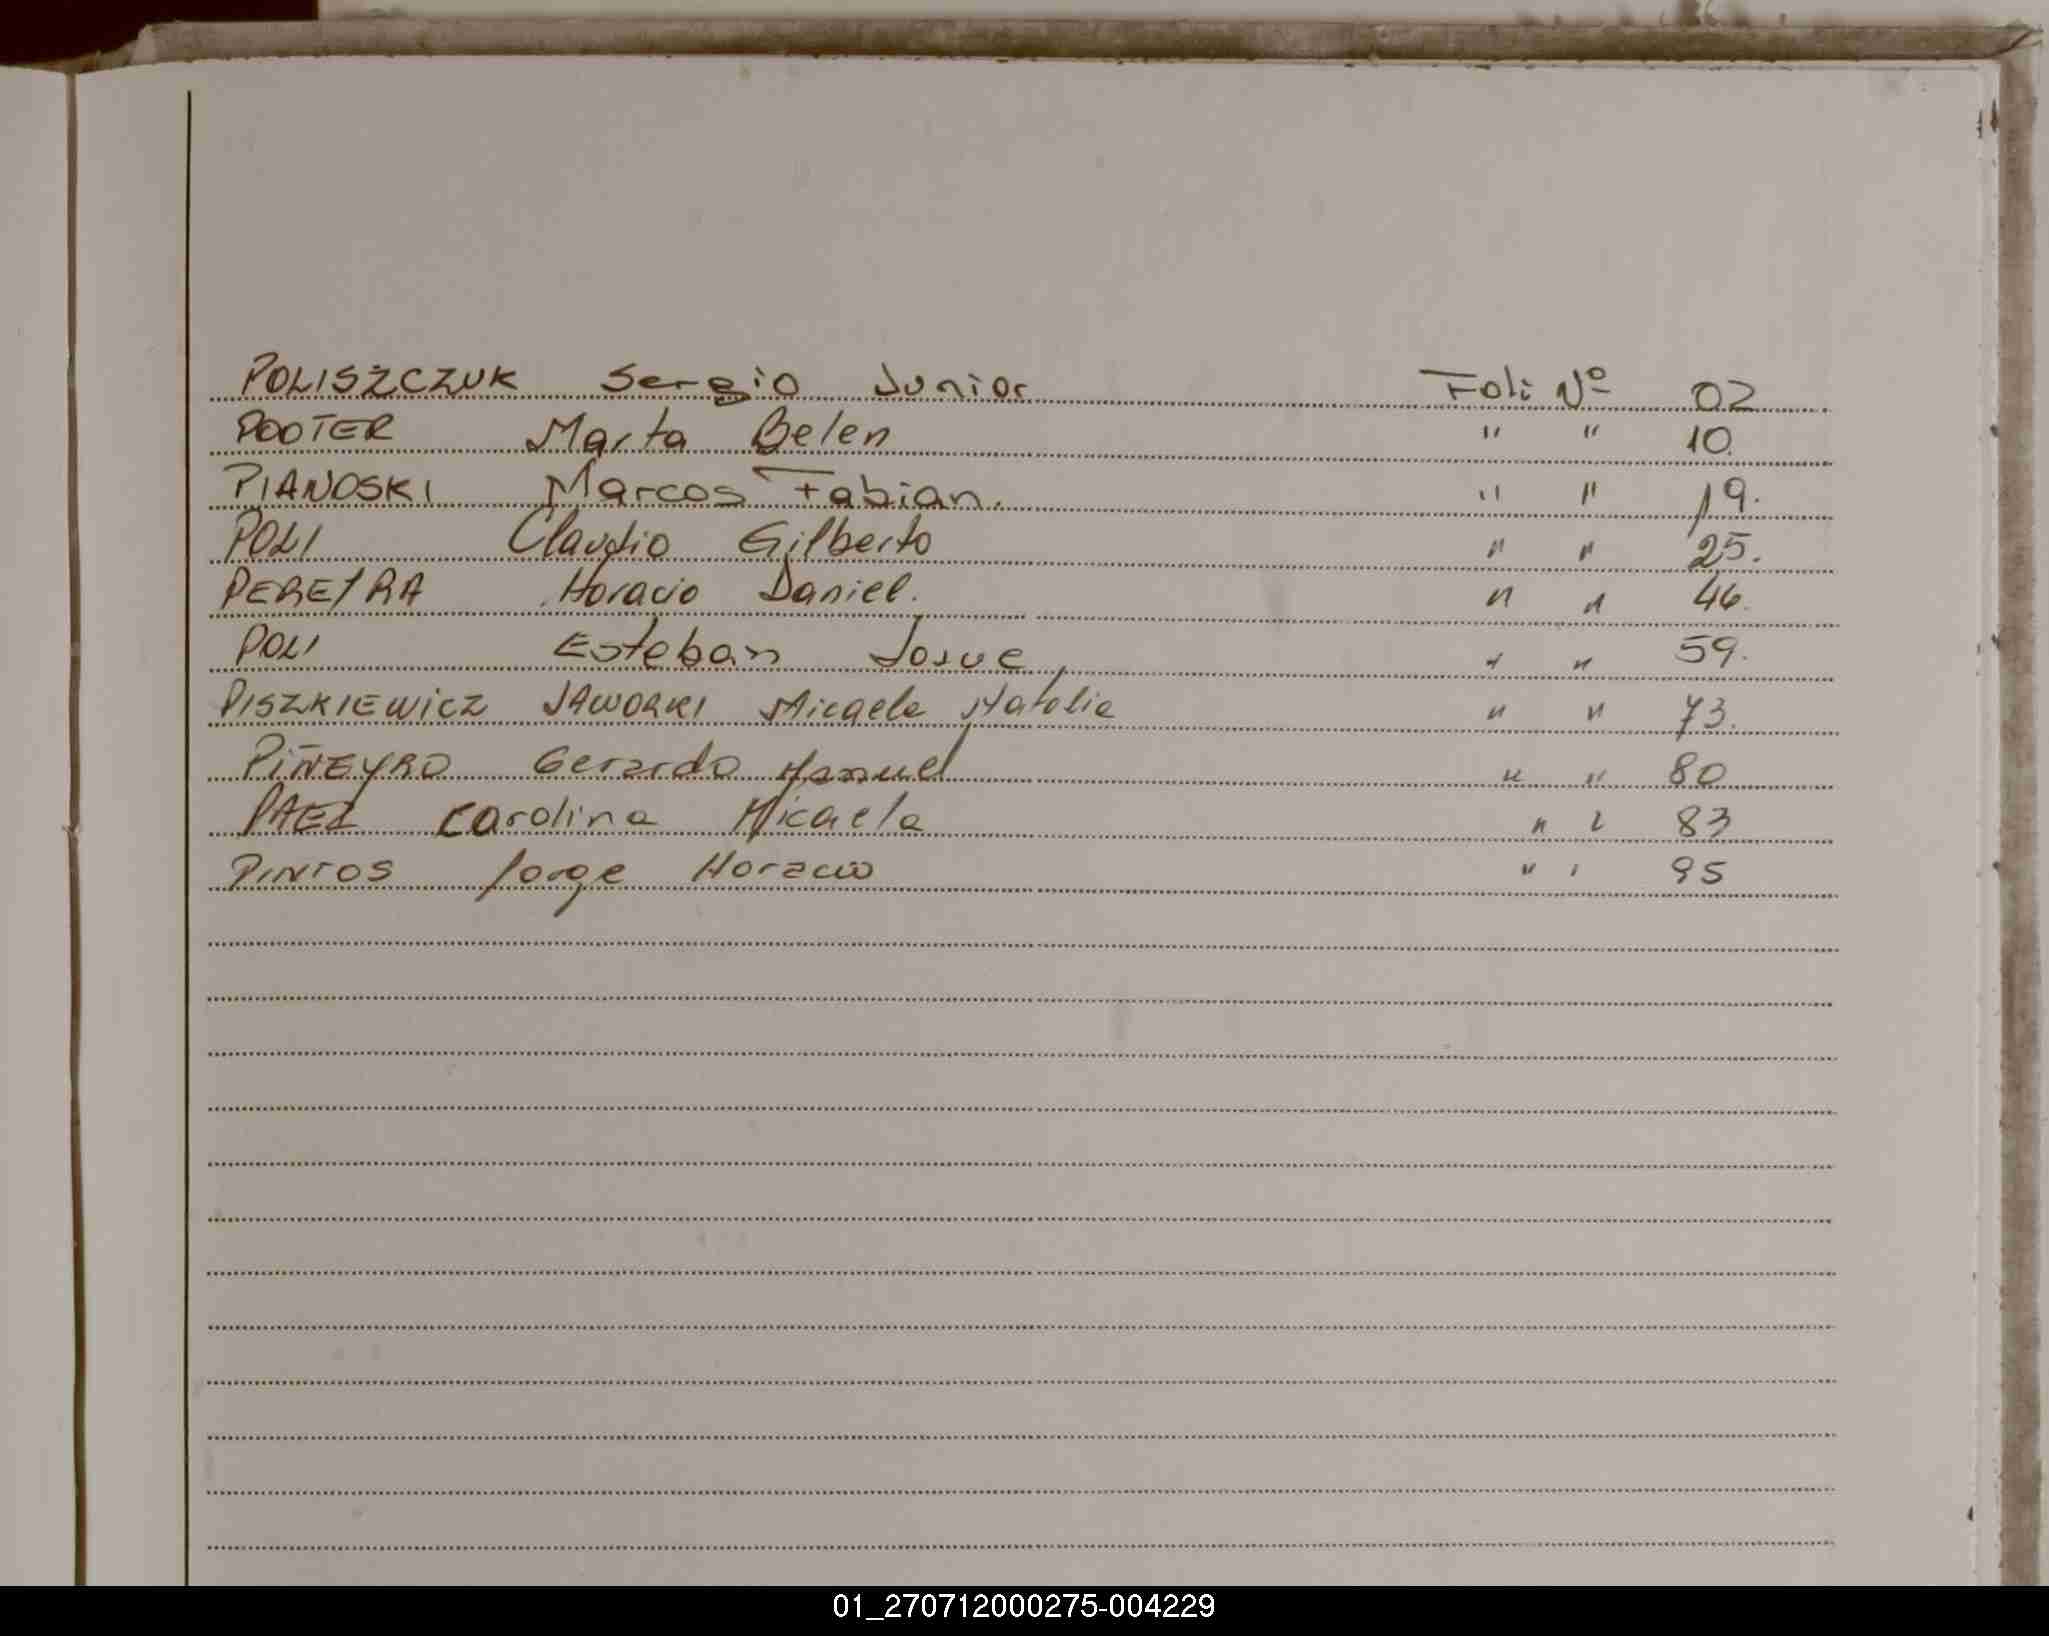 POLISZCZUK Sergio Junior Foli Nº 02
POOTER Marta Belen " " 10.
PIANOSKI Marcos Fabian. " " 19.
POLI Claudio Gilberto " " 25.
PEREYRA Horacio Daniel. " " 46.
POLI Esteban Josue " " 59.
PISZKIEWICZ JAWORKI Micaela Natalia " " 73.
PIÑEYRO Gerardo Manuel " " 80
PAEZ Carolina Micaela " " 83
PINTOS Jorge Horacio " " 95
01_270712000275-004229